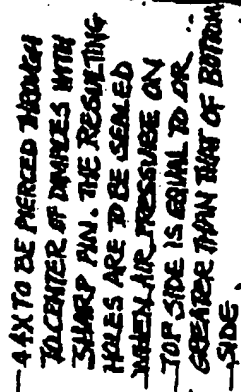 44X TO BE PIERCED THROUGH
TO CENTER OF DIMPLES WITH
SHARP PIN. THE RESULTING
HOLES ARE TO BE SEALED
WHEN AIR PRESSURE ON
TOP SIDE IS EQUAL TO OR
GREATER THAN THAT OF BOTTOM
SIDE